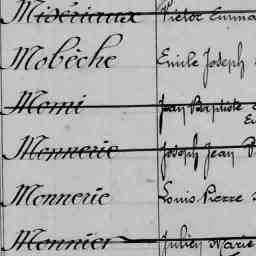 Misériaux Victor Emma
Mobèche Emile Joseph
Momi Jean Baptiste
Monnerie Joseph Jean
Monnerie Louis Pierre
Monnier Julien Marie